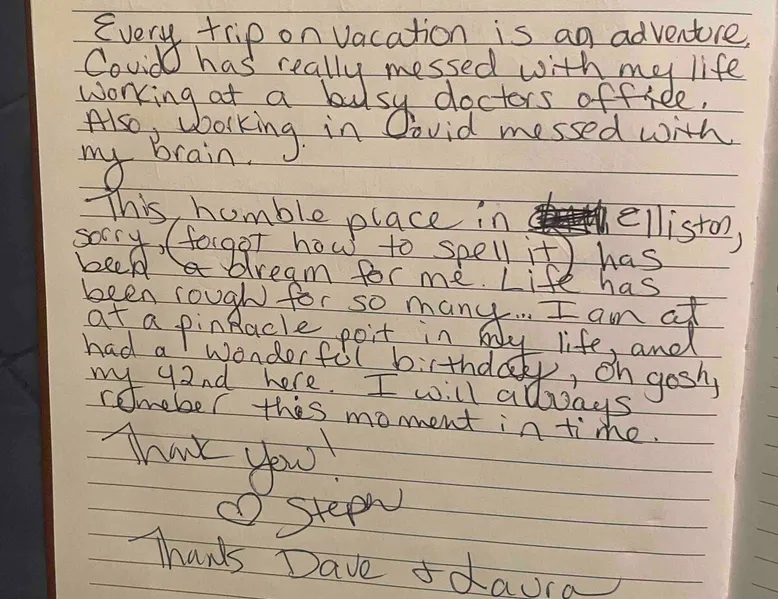 Every trip on vacation is an adventure.
Covid has really messed with my life
working at a busy doctors office.
Also, working in Covid messed with
my brain.
This humble place in elliston,
sorry, (forgot how to spell it) has
been a dream for me. Life has
been rough for so many... I am at
at a pinnacle poit in my life, and
had a wonderful birthday, oh gosh,
my 42nd here. I will always
remeber this moment in time.
Thank you!
♡ Steph
Thanks Dave & Laura